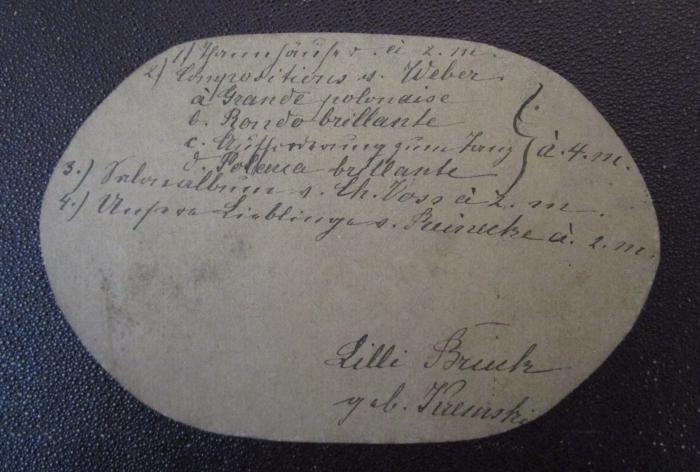 1) Tannhäuser. à 2. m.
2) Compositions v. Weber.
a Grande polonaise
b. Rondo brillante
c. Aufforderung zum Tanz
d. Polacca brillante
} à 4. m.
3.) Salonalbum v. Ch. Voss à 2. m.
4.) Unsere Lieblinge v. Reinecke à. 2. m.
Lilli Bruck
geb. Kremski